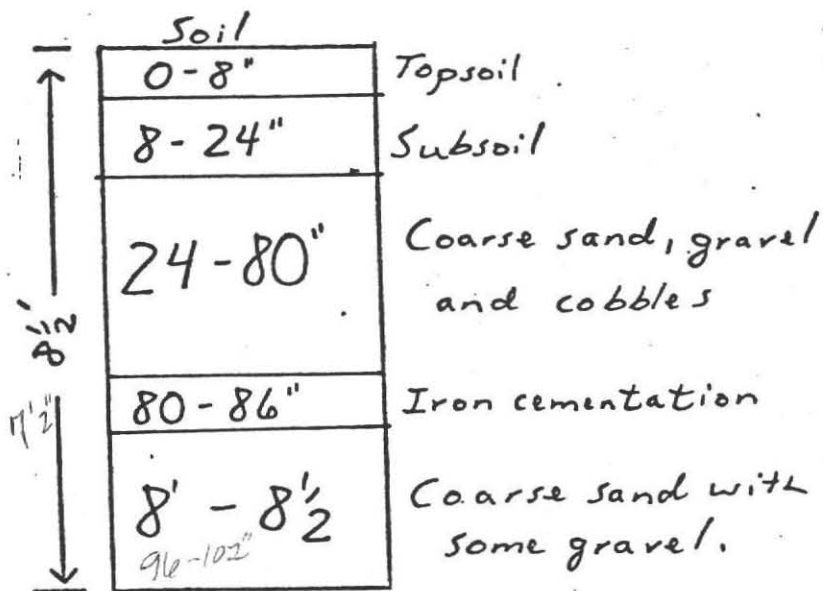 Soil
0-8" Topsoil
8-24" Subsoil
24-80" Coarse sand, gravel
and cobbles
8½'
7'2"
80-86" Iron cementation
8' - 8½ Coarse sand with
96-102" some gravel.